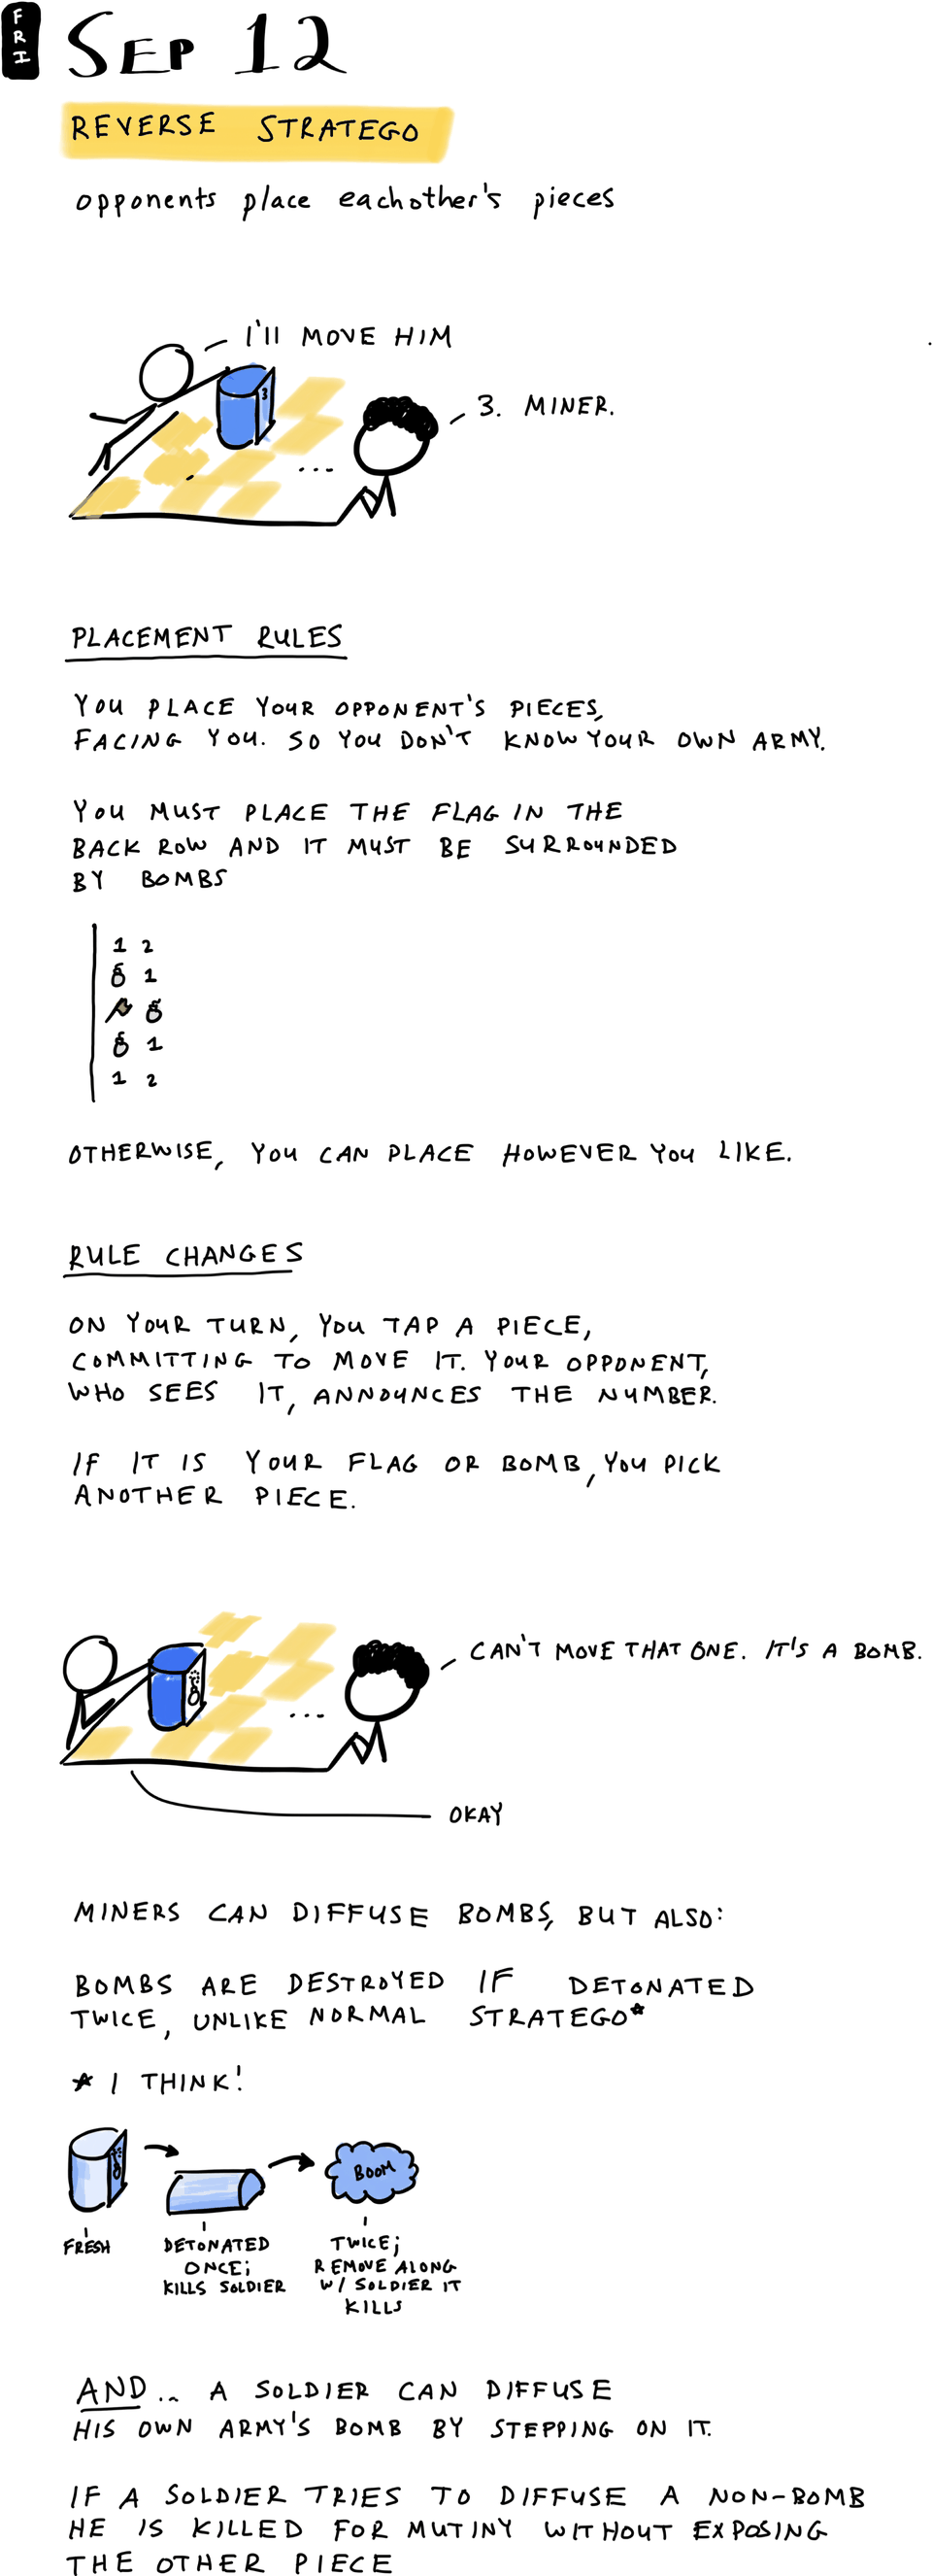 FRI
SEP 12
REVERSE STRATEGO
opponents place eachother's pieces
I'll MOVE HIM
3
3. MINER.
...
PLACEMENT RULES
YOU PLACE YOUR OPPONENT'S PIECES,
FACING YOU. SO YOU DON'T KNOW YOUR OWN ARMY.
YOU MUST PLACE THE FLAG IN THE
BACK ROW AND IT MUST BE SURROUNDED
BY BOMBS
1 2
1
1
1 2
OTHERWISE, YOU CAN PLACE HOWEVER YOU LIKE.
RULE CHANGES
ON YOUR TURN, YOU TAP A PIECE,
COMMITTING TO MOVE IT. YOUR OPPONENT,
WHO SEES IT, ANNOUNCES THE NUMBER.
IF IT IS YOUR FLAG OR BOMB, YOU PICK
ANOTHER PIECE.
CAN'T MOVE THAT ONE. IT'S A BOMB.
...
OKAY
MINERS CAN DIFFUSE BOMBS, BUT ALSO:
BOMBS ARE DESTROYED IF DETONATED
TWICE, UNLIKE NORMAL STRATEGO*
* I THINK!
BOOM
FRESH
DETONATED
ONCE;
KILLS SOLDIER
TWICE;
REMOVE ALONG
W/ SOLDIER IT
KILLS
AND... A SOLDIER CAN DIFFUSE
HIS OWN ARMY'S BOMB BY STEPPING ON IT.
IF A SOLDIER TRIES TO DIFFUSE A NON-BOMB
HE IS KILLED FOR MUTINY WITHOUT EXPOSING
THE OTHER PIECE